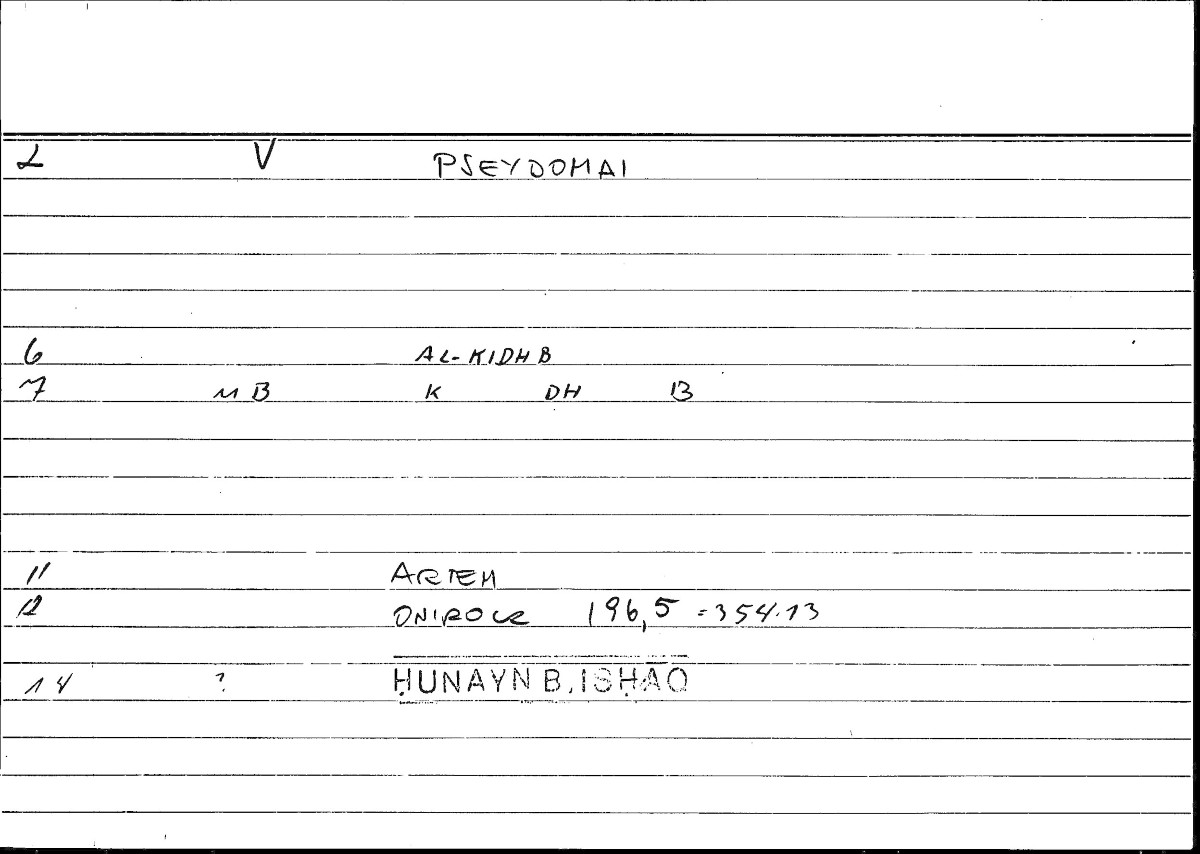 2 V PSEYDOMAI
6 AL-KIDHB
7 MB K DH B
11 ARTEM
12 ONIROCR 196,5 =354.13
14 ? ḤUNAYN B. ISḤĀQ